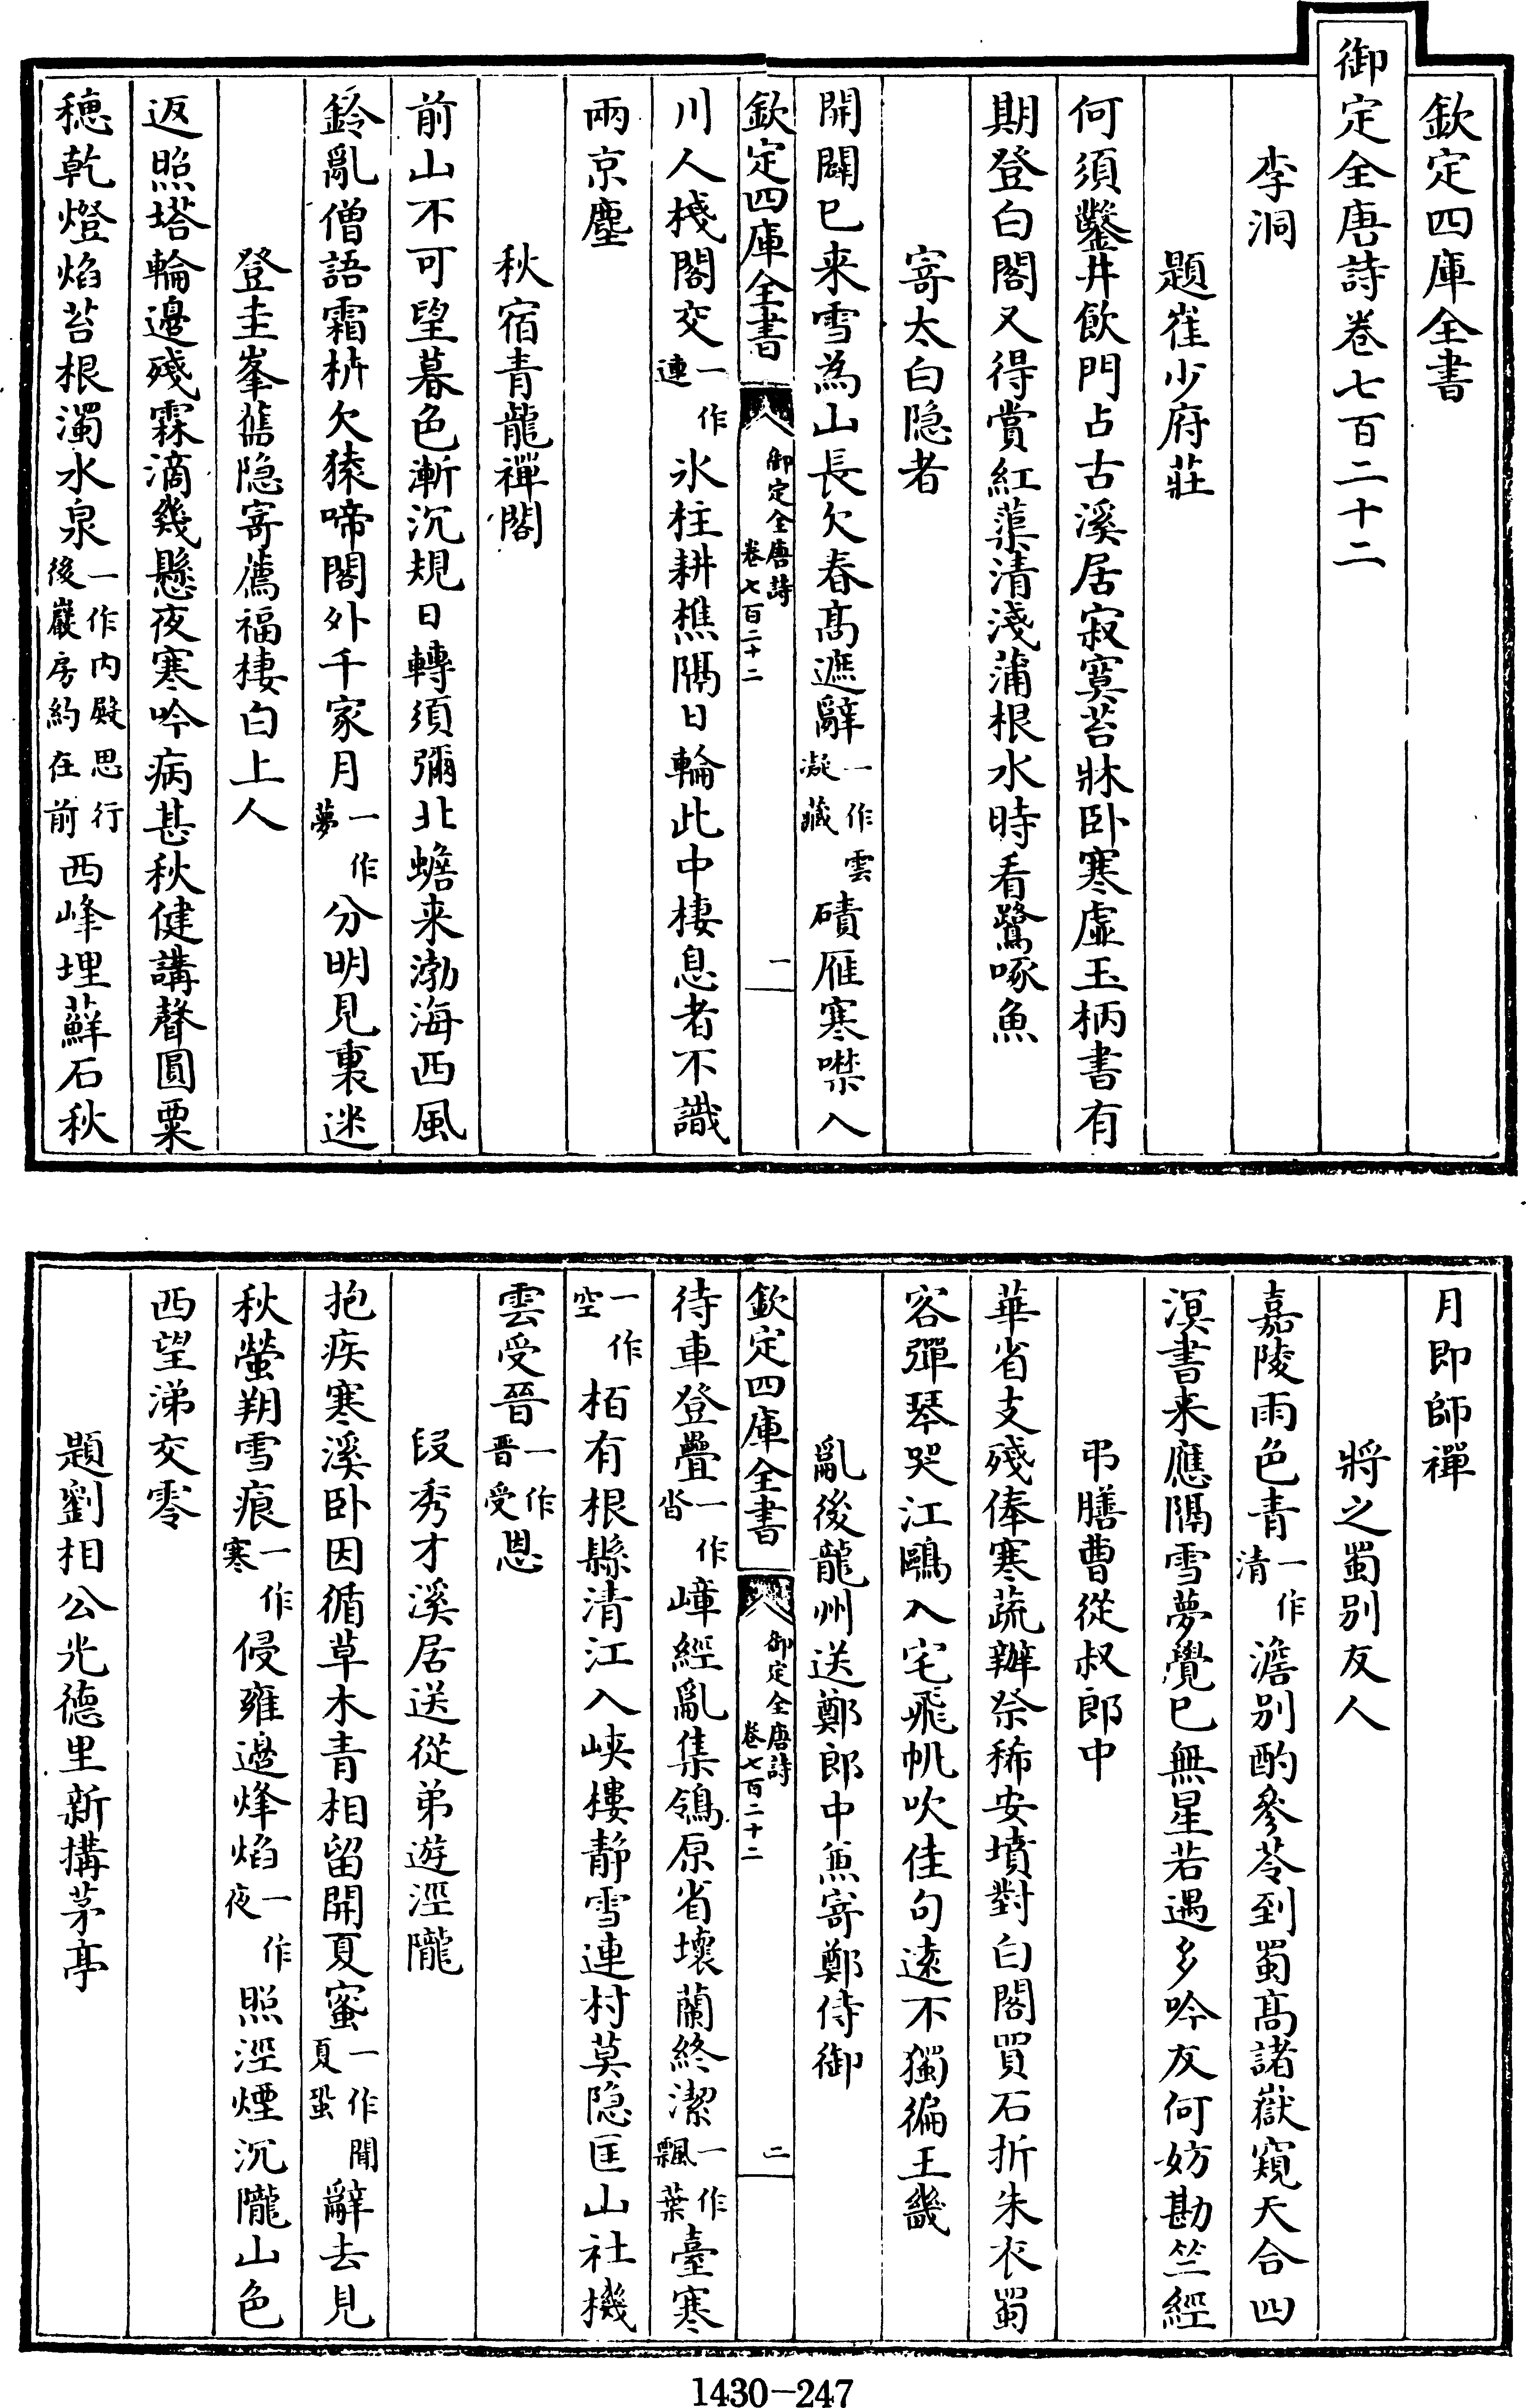 欽定四庫全書
御定全唐詩卷七百二十二
李洞
題崔少府莊
何須鑿井飲門占古溪居寂寞苔牀卧寒虛玉柄書有
期登白閣又得賞紅蕖清淺蒲根水時看鷺啄魚
寄太白隐者
開闢已来雪為山長欠春髙遮辭一作雲凝藏磧雁寒噤入
欽定四庫全書
御定全唐詩卷七百二十二
一
川人棧閣交一作連氷柱耕樵隔日輪此中棲息者不識
兩京塵
秋宿青龍禪閣
前山不可望暮色漸沉規日轉須彌北蟾来渤海西風
鈴亂僧語霜枿欠猿啼閣外千家月一作夢分明見裏迷
登圭峯舊隐寄薦福棲白上人
返照塔輪邉殘霖滴幾懸夜寒吟病甚秋健講聲圓粟
穗乾燈焰苔根濁水泉一作内殿思行後巖房約在前西峰埋蘚石秋
月即師禪
將之蜀别友人
嘉陵雨色青一作清澹别酌參苓到蜀髙諸嶽窺天合四
溟書来應隔雪夢覺已無星若遇多吟友何妨勘竺經
弔膳曹從叔郎中
華省支殘俸寒蔬辦祭稀安墳對白閣買石折朱衣蜀
客彈琴哭江鷗入宅飛帆吹佳句逺不獨徧王畿
亂後龍州送鄭郎中兼寄鄭侍御
欽定四庫全書
御定全唐詩卷七百二十二
二
待車登疊一作沓嶂經亂集鴒原省壞蘭終潔一作飄葉臺寒
一作空栢有根縣清江入峡樓静雪連村莫隐匡山社機
雲受晉一作晋受恩
段秀才溪居送從弟遊涇隴
抱疾寒溪卧因循草木青相留開夏蜜一作聞夏蛩辭去見
秋螢朔雪痕一作寒侵雍邉烽焰一作夜照涇煙沉隴山色
西望涕交零
題劉相公光德里新搆茅亭
1430-247